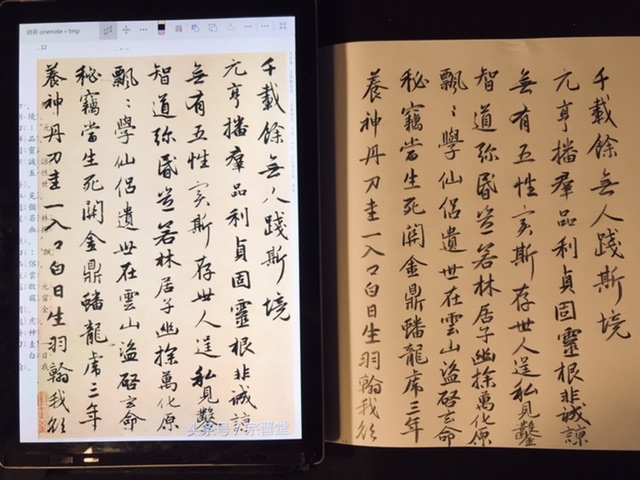 onenote - tmp
12
千載餘無人踐斯境
元亨播羣品利貞固靈根非誠諒
無有五性實斯存世人逞私見鑿
智道弥昏豈若林居子幽探萬化原
飄〻學仙侣遺世在雲山盜啓玄命
秘竊當生死関金鼎蟠龍虎三年
養神丹刀圭一入口白日生羽翰我欲
头条号/宗晋堂
千載餘無人踐斯境
元亨播羣品利貞固靈根非誠諒
無有五性實斯存世人逞私見鑿
智道弥昏豈若林居子幽探萬化原
飄〻學仙侣遺世在雲山盜啓玄命
秘竊當生死関金鼎蟠龍虎三年
養神丹刀圭一入口白日生羽翰我欲